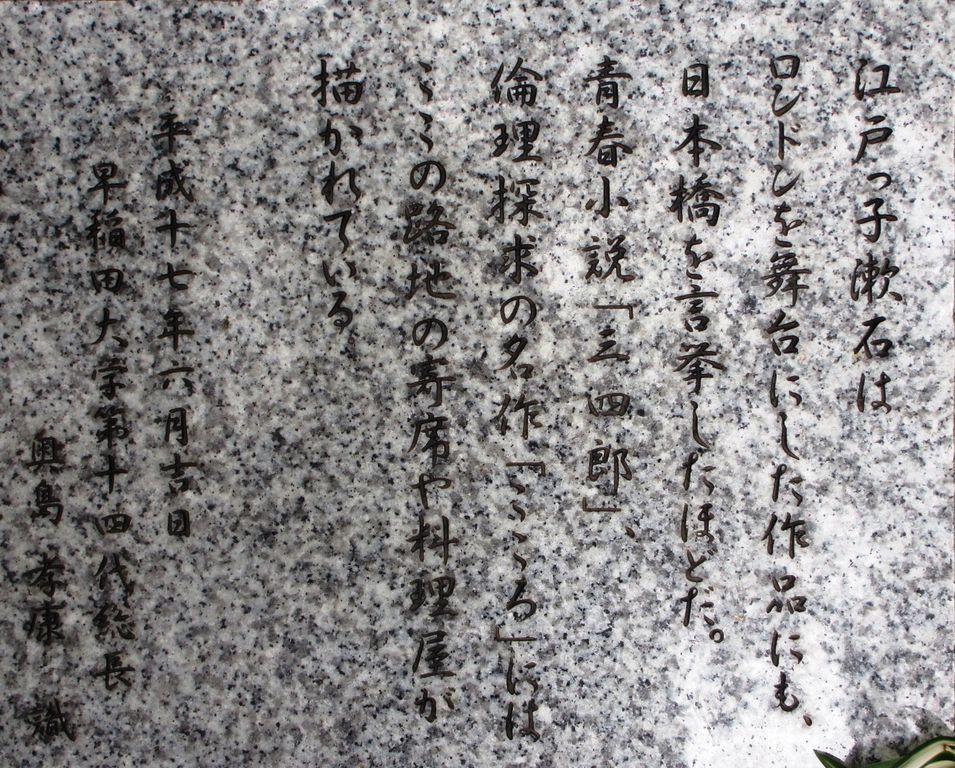 江戸っ子漱石は
ロンドンを舞台にした作品にも、
日本橋を言挙したほどだ。
青春小説「三四郎」、
倫理探求の名作「こころ」には
ここの路地の寄席や料理屋が
描かれている
平成十七年六月吉日
早稲田大学第十四代総長
奥島孝康 識